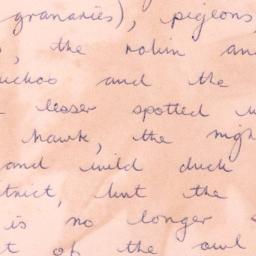 granaries), pigeons,
, the robin an
uckoo and the
lesser spotted w
hawk, the nigh
and wild duck
trict, but the
is no longer
t of the owl